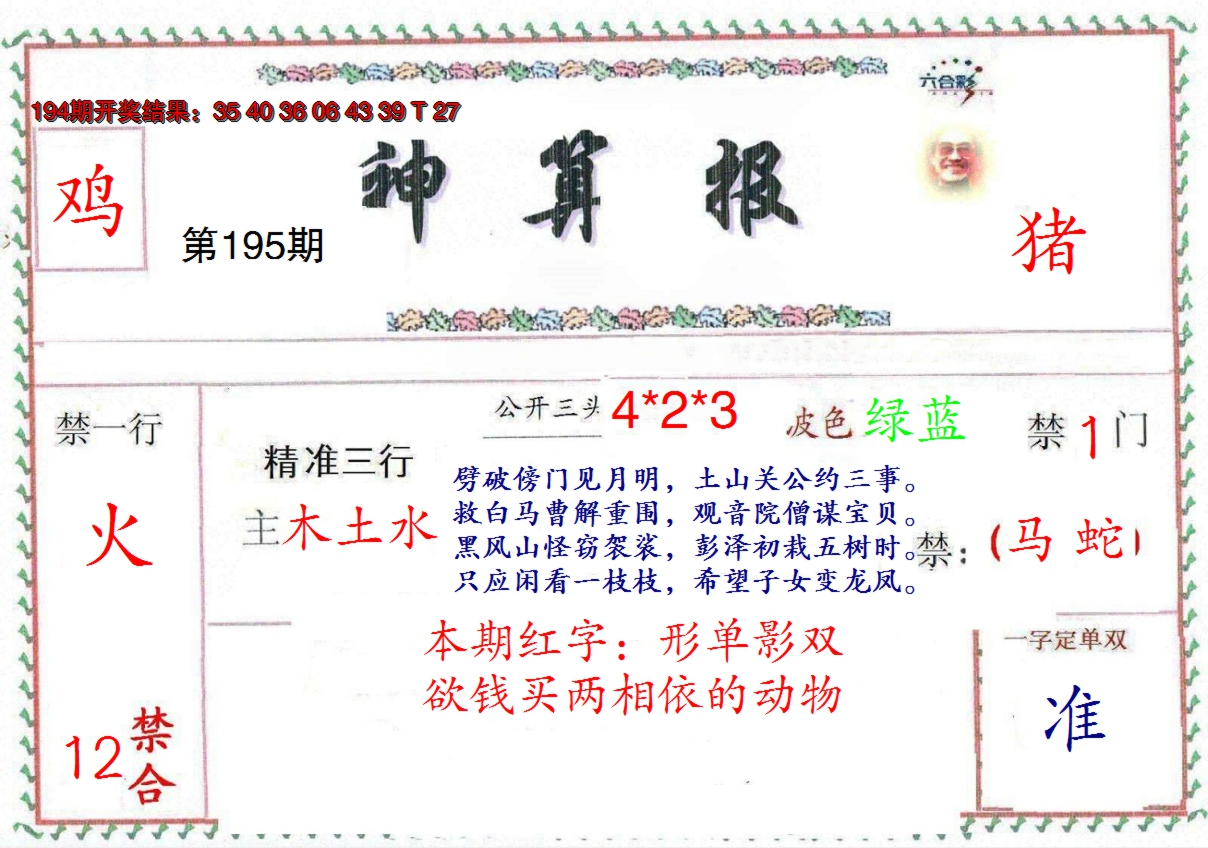 六合彩
194期开奖结果：35 40 36 06 43 39 T 27
神算报
鸡
第195期
猪
公开三头 4*2*3
波色 绿蓝
禁1门
禁一行
火
精准三行
主木土水
劈破傍门见月明，土山关公约三事。
救白马曹解重围，观音院僧谋宝贝。
黑风山怪窃袈裟，彭泽初栽五树时。
只应闲看一枝枝，希望子女变龙凤。
禁：（马 蛇）
本期红字：形单影双
欲钱买两相依的动物
一字定单双
准
12禁合